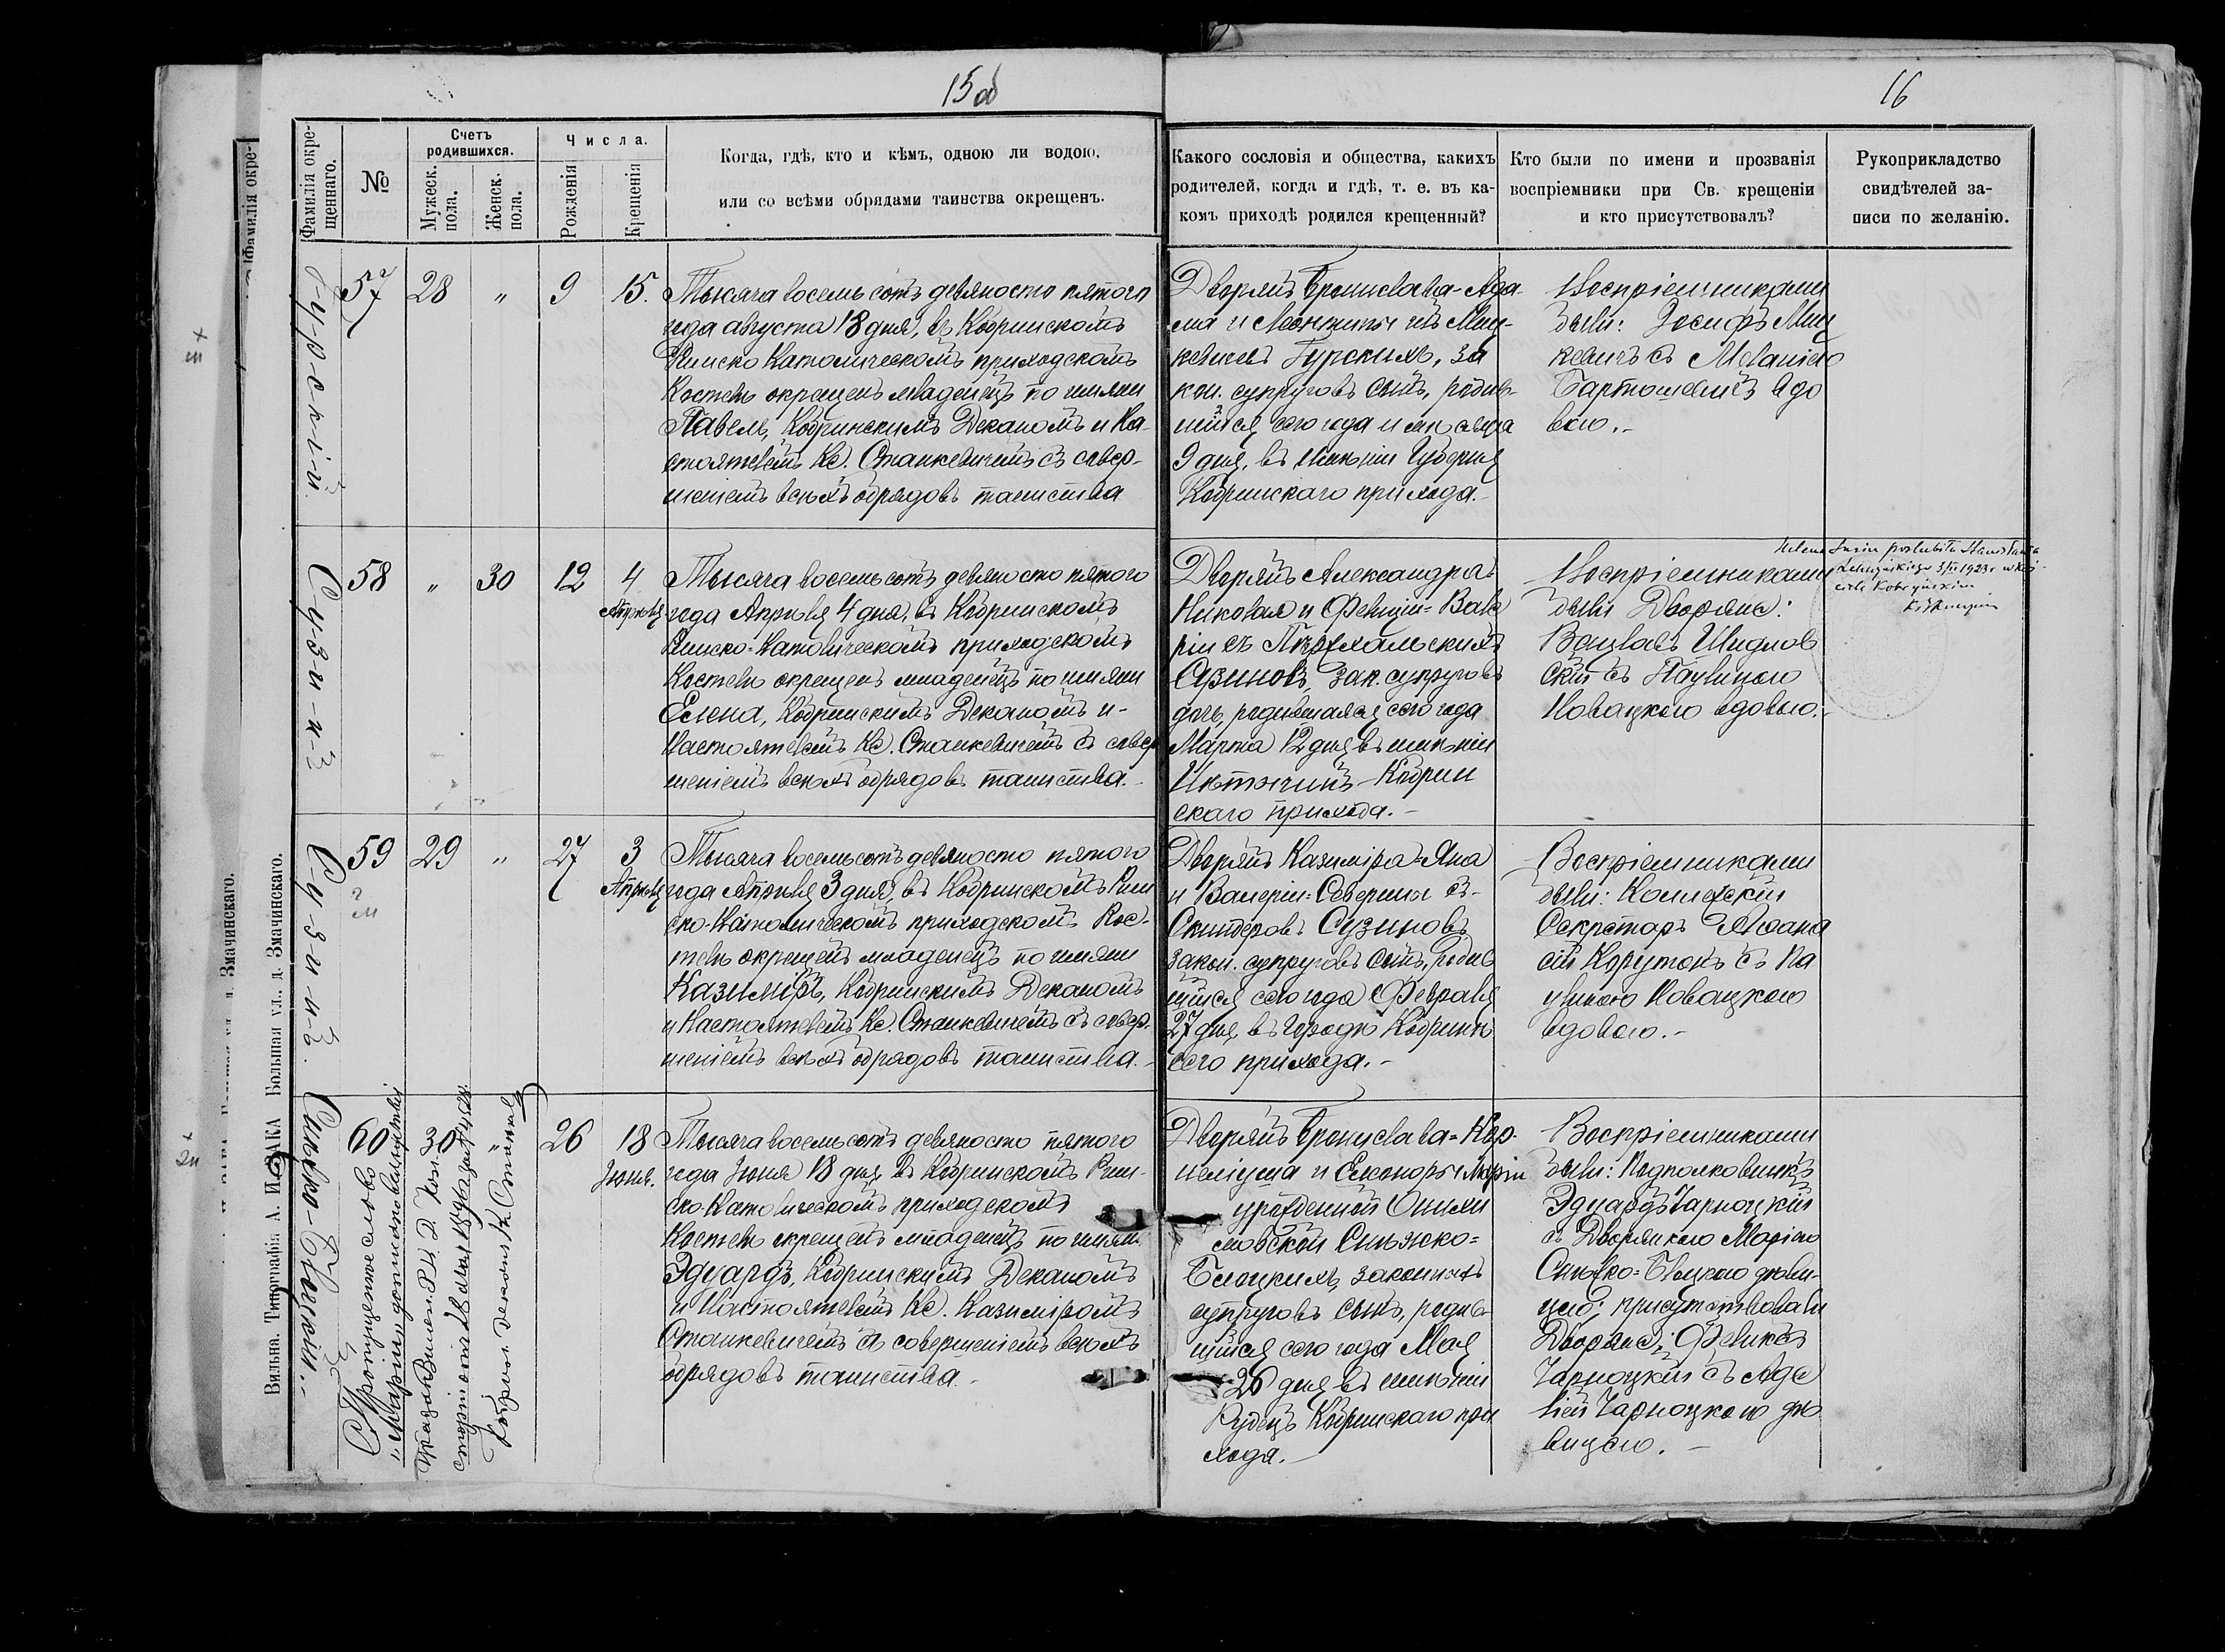 15об
16
Фамилія окре-
щеннаго.
№
Счетъ
родившихся.
Мужеск.
пола.
Женск.
пола.
Числа.
Рожденія
Крещенія
Когда, гдѣ, кто и кѣмъ, одною ли водою,
или со всѣми обрядами таинства окрещенъ.
Какого сословія и общества, какихъ
родителей, когда и гдѣ, т. е. въ ка-
комъ приходѣ родился крещенный?
Кто были по имени и прозванія
воспріемники при Св. крещеніи
и кто присутствовалъ?
Рукоприкладство
свидѣтелей за-
писи по желанію.
Гурскій
57
28
"
9
15.
Тысяча восемьсотъ девяносто пятого
года августа 18 дня, въ Кобринскомъ
Римско Католическомъ приходскомъ
Костелѣ окрещенъ младенецъ по имени
Павелъ, Кобринскимъ Деканомъ и На-
стоятелемъ Кс. Станкевичемъ съ совер-
шеніемъ всѣхъ обрядовъ таинства
Дворянъ Бронислава-Ада-
ма и Леонтины изъ Миц-
кевичевъ Гурскихъ, за
кон. супруговъ сынъ, родив-
шійся сего года и мѣсяца
9 дня, въ имѣніи Губерня
Кобринскаго прихода.-
Воспріемниками
были: Іосифъ Миц
кевичъ съ Меланіею
Бартошевичъ вдо
вою.-
Сузинъ
58
"
30
12
4
Апрѣля
Тысяча восемьсотъ девяносто пятого
года Апрѣля 4 дня, въ Кобринскомъ
Римско-Католическомъ приходскомъ
Костелѣ окрещенъ младенецъ по имени
Елена, Кобринскимъ Деканомъ и-
Настоятелемъ Кс. Станкевичемъ съ совер
шеніемъ всѣхъ обрядовъ таинства.-
Дворянъ Александра-
Николая и Фелиціи-Вале
ріи съ
Сузиновъ, зак. супруговъ
дочь, родившаяся сего года
Марта 12 дня въ имѣніи
Кобрин
скаго прихода.-
Воспріемниками
были Дворяне:
Вацлавъ Шидлов
скій съ Паулиною
Новацкою вдовою.-
Helena Suzin poślubiła Stanisława
1923 r w Koś-
ciele Kobryńskim
Сузинъ.
59
29
"
27
3
Апрѣля
Тысяча восемьсотъ девяносто пятого
года Апрѣля 3 дня, въ Кобринскомъ Рим
ско-Католическомъ приходскомъ Кос-
телѣ окрещенъ младенецъ по имени
Казиміръ, Кобринскимъ Деканомъ
и Настоятелемъ Кс. Станкевичемъ съ совер-
шеніемъ всѣхъ обрядовъ таинства.-
Дворянъ Казиміра-Яна
и Валеріи-Северины съ-
Скиндеровъ Сузиновъ
закон. супруговъ сынъ, родив
шійся сего года Февраля
27 дня въ городѣ Кобринѣ
сего прихода.-
Воспріемниками
были: Коллежскій
Секретарь Афана
сій Корутонъ съ Па
улиною Новацкою
вдовою.-
Ситко-Бѣлецкій.-
60
30
"
26
18
Іюня.
Тысяча восемьсотъ девяносто пятого
года Іюня 18 дня въ Кобринскомъ Рим-
ско-Католическомъ приходскомъ
Костелѣ окрещенъ младенецъ по имени
Эдуардъ, Кобринскимъ Деканомъ
и Настоятелемъ Кс. Казиміромъ
Станкевичемъ съ совершеніемъ всѣхъ
обрядовъ таинства.-
Дворянъ Бронислава-Кор-
неліуша и Елеоноры Маріи
урожденной
закон.
супруговъ сынъ, родив
шійся сего года Мая
26 дня въ имѣніи
Рудецъ Кобринскаго при
хода.-
Воспріемниками
были: Подполковникъ
Эдуардъ Чарноцкій
съ Дворянкою Маріею
дѣви-
цею; присутствовали
Дворяне: Феликсъ
Чарноцкій съ Аде
ліею Чарноцкою дѣ
вицею.-
Пропущенное слово
"Маріи" дополнено вслѣдствіе
Указа
1896 года
Вильна. Типографія А. И. ЗАКА Большая ул., д. Змачинскаго.